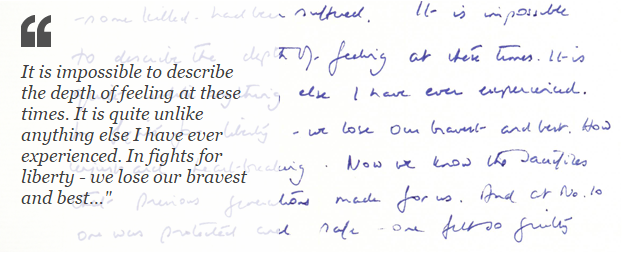 “
It is impossible to describe
the depth of feeling at these
times. It is quite unlike
anything else I have ever
experienced. In fights for
liberty - we lose our bravest
and best..."
- some killed. had been suffered. It is impossible
to describe the depth of feeling at these times. It is
anything else I have ever experienced.
liberty - we lose our bravest and best. How
and heartbreaking. Now we know the sacrifices
that previous generations made for us. And at No. 10
one was protected and safe - one felt so guilty